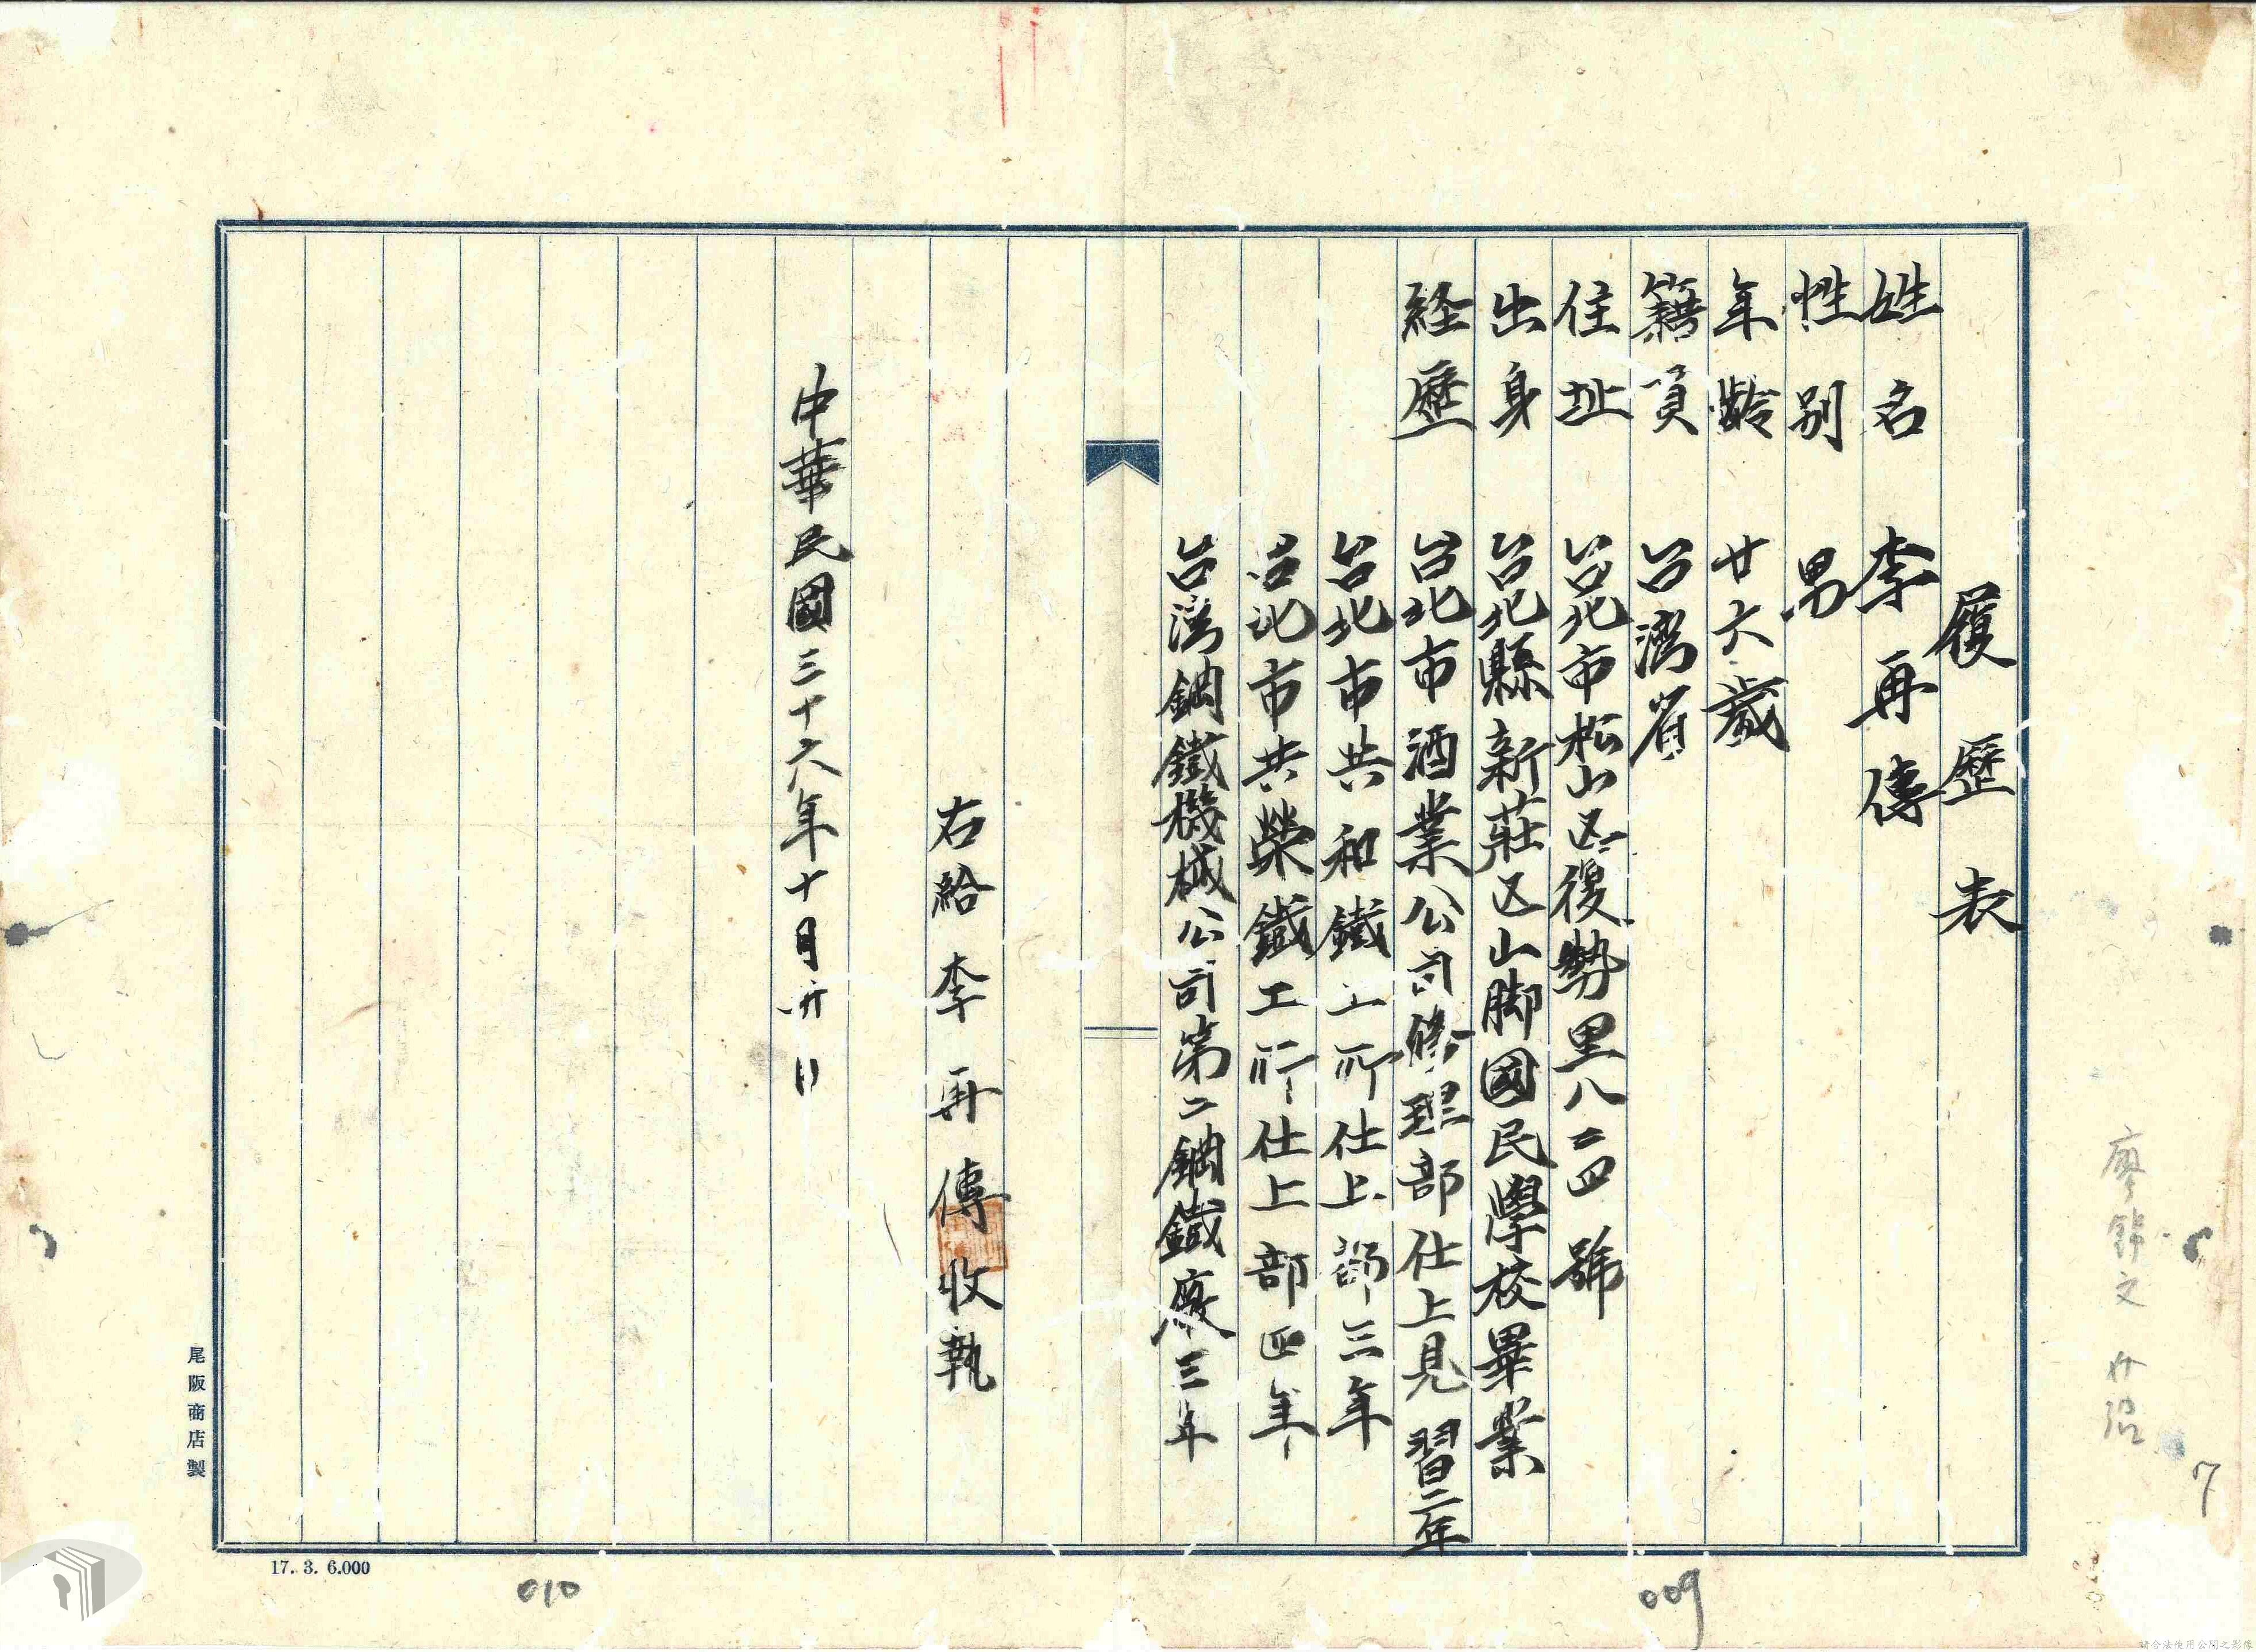 履歷表
姓名 李再傳
性別 男
年齡 廿六歲
籍貫 台灣省
住址 台北市松山区復勢里八二四號
出身 台北縣新莊区山脚國民學校畢業
経歷 台北市酒業公司修理部仕上見習二年
台北市共和鐵工所仕上部三年
台北市共榮鐵工所仕上部四年
台湾鋼鐵機械公司第二鋼鐵廠三年
右給李再傳收執
中華民國三十六年十月卅日
尾阪商店製
17. 3. 6.000
010
009
廖錦文
7